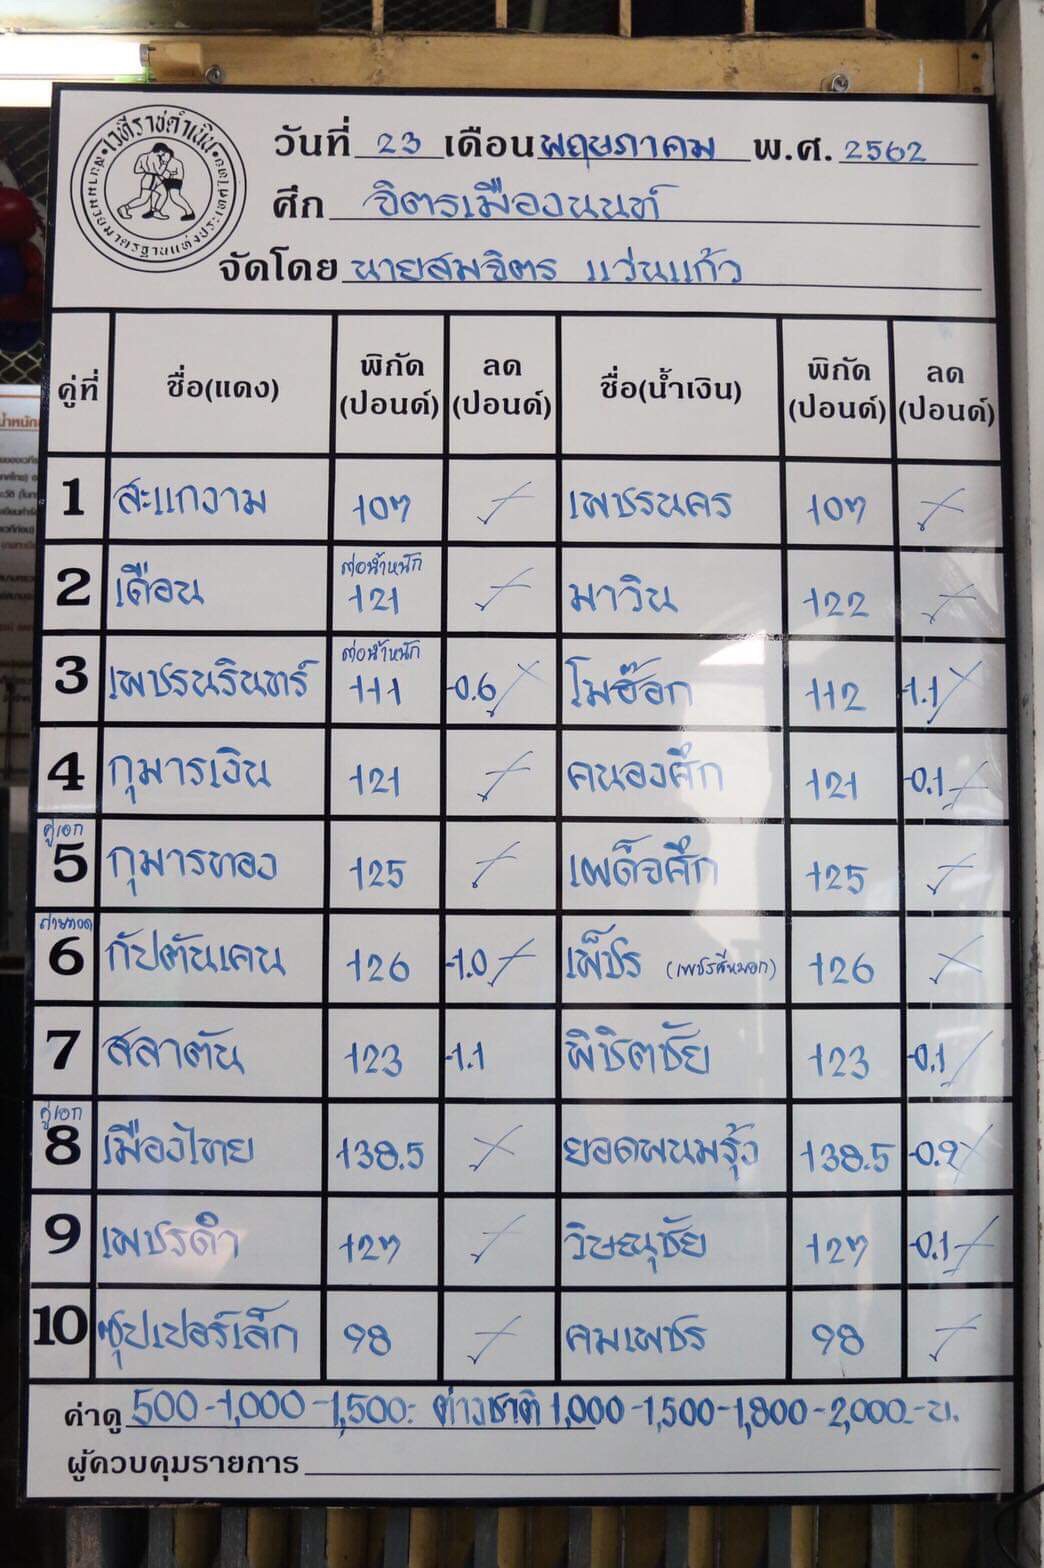 เวทีราชดำเนิน
วันที่ 23 เดือน พฤษภาคม พ.ศ. 2562
ศึก จิตรเมืองนนท์
จัดโดย นายสมจิตร แว่นแก้ว
คู่ที่ ชื่อ(แดง) พิกัด (ปอนด์) ลด (ปอนด์) ชื่อ(น้ำเงิน) พิกัด (ปอนด์) ลด (ปอนด์)
1 สะแกงาม 107 เพชรนคร 107
2 เดือน ต่อน้ำหนัก 121 มาวิน 122
3 เพชรนรินทร์ ต่อน้ำหนัก 111 -0.6 โมฮ๊อก 112 -1.1
4 กุมารเงิน 121 คนองศึก 121 -0.1
คู่เอก 5 กุมารทอง 125 เผด็จศึก 125
ถ่ายทอด 6 กัปตันเคน 126 -1.0 เพ็ชร (เพชรสีหมอก) 126
7 สลาตัน 123 -1.1 พิชิตชัย 123 -0.1
คู่เอก 8 เมืองไทย 138.5 ยอดพนมรุ้ง 138.5 -0.9
9 เพชรดำ 127 วิษณุชัย 127 -0.1
10 ซุปเปอร์เล็ก 98 คมเพชร 98
ค่าดู 500-1,000-1,500.- ต่างชาติ 1,000-1,500-1,800-2,000.-บ.
ผู้ควบคุมรายการ